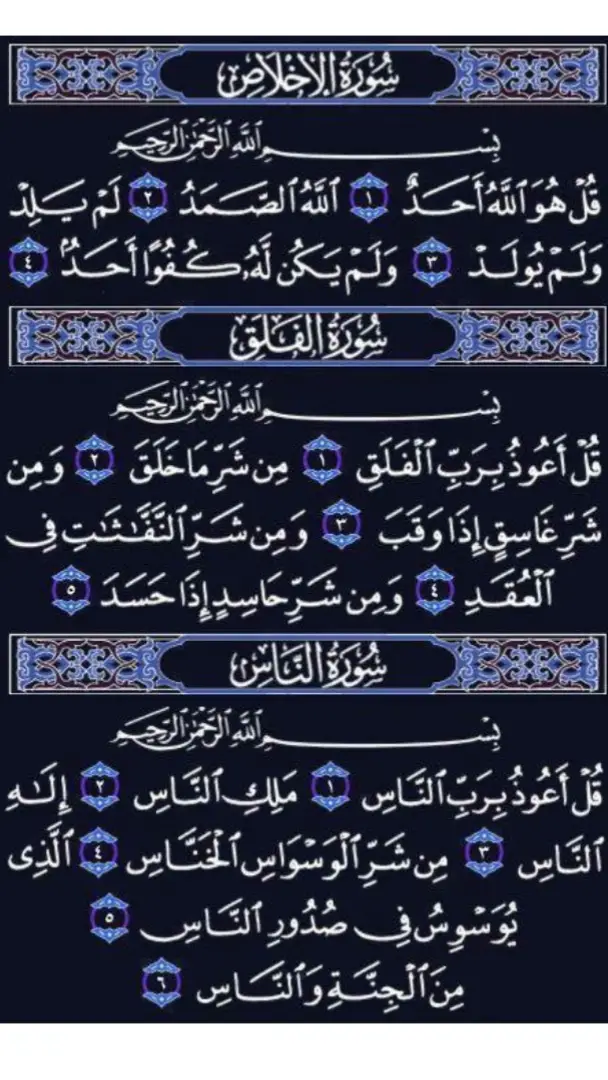 سُورَةُ الإِخْلَاصِ
بِسْمِ اللَّهِ الرَّحْمَٰنِ الرَّحِيمِ
قُلْ هُوَ ٱللَّهُ أَحَدٌ ١ ٱللَّهُ ٱلصَّمَدُ ٢ لَمْ يَلِدْ
وَلَمْ يُولَدْ ٣ وَلَمْ يَكُن لَّهُۥ كُفُوًا أَحَدٌۢ ٤
سُورَةُ الفَلَقِ
بِسْمِ اللَّهِ الرَّحْمَٰنِ الرَّحِيمِ
قُلْ أَعُوذُ بِرَبِّ ٱلْفَلَقِ ١ مِن شَرِّ مَا خَلَقَ ٢ وَمِن
شَرِّ غَاسِقٍ إِذَا وَقَبَ ٣ وَمِن شَرِّ ٱلنَّفَّٰثَٰتِ فِى
ٱلْعُقَدِ ٤ وَمِن شَرِّ حَاسِدٍ إِذَا حَسَدَ ٥
سُورَةُ النَّاسِ
بِسْمِ اللَّهِ الرَّحْمَٰنِ الرَّحِيمِ
قُلْ أَعُوذُ بِرَبِّ ٱلنَّاسِ ١ مَلِكِ ٱلنَّاسِ ٢ إِلَٰهِ
ٱلنَّاسِ ٣ مِن شَرِّ ٱلْوَسْوَاسِ ٱلْخَنَّاسِ ٤ ٱلَّذِى
يُوَسْوِسُ فِى صُدُورِ ٱلنَّاسِ ٥
مِنَ ٱلْجِنَّةِ وَٱلنَّاسِ ٦